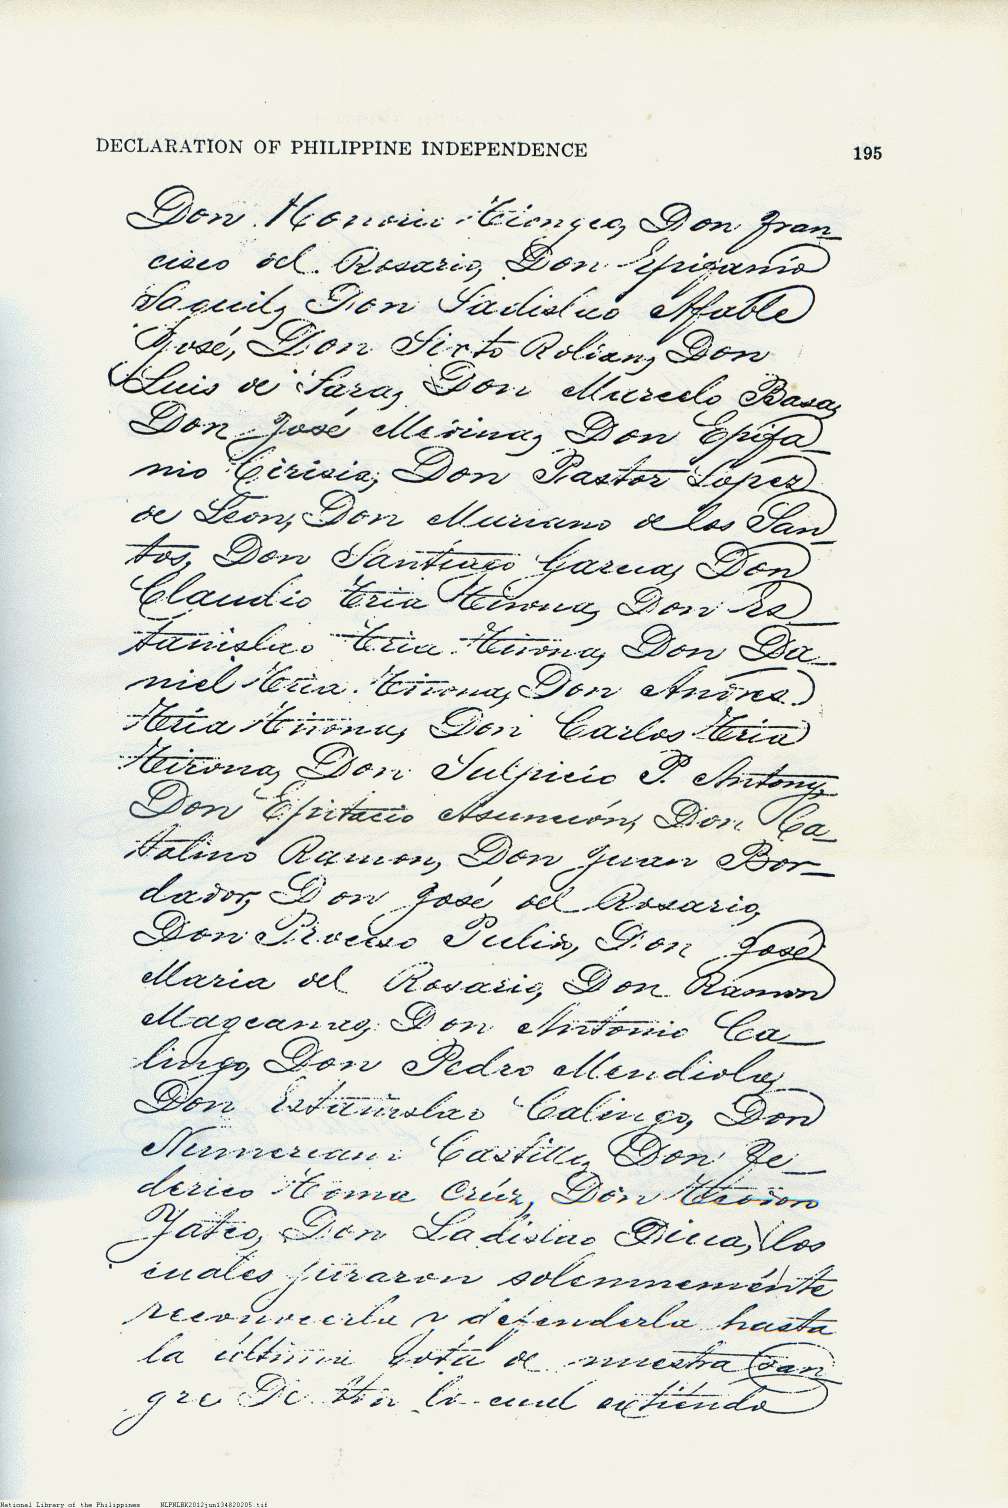 DECLARATION OF PHILIPPINE INDEPENDENCE 195
Don Honorio Tiongco, Don Fran-
cisco del Rosario, Don Epifanio
Saguil, Don Ladislao Affable
José, Don Sixto Roldan, Don
Luis de Lara, Don Marcelo Basa,
Don José Medina, Don Epifa-
nio Crisia, Don Pastor Lopez
de Leon, Don Mariano de los San-
tos, Don Santiago Garcia, Don
Claudio Tria Tirona, Don Es-
tanislao Tria Tirona, Don Da-
niel Tria Tirona, Don Andres
Tria Tirona, Don Carlos Tria
Tirona, Don Sulpicio P. Antony,
Don Epitacio Asuncion, Don Ca-
talino Ramon, Don Juan Bor-
dador, Don José del Rosario,
Don Proceso Pulido, Don José
Maria del Rosario, Don Ramon
Magcamag, Don Antonio Ca-
lingo, Don Pedro Mendiola,
Don Estanislao Calingo, Don
Numeriano Castillo, Don Fe-
derico Toma Crúz, Don Teodoro
Yatco, Don Ladislao Diua, los
cuales juraron solemneménte
reconocerla y defenderla hasta
la última gota de nuestra san-
gre De todo lo cual extiendo
National Library of the Philippines NLPNLBK2012jun134820205.tif